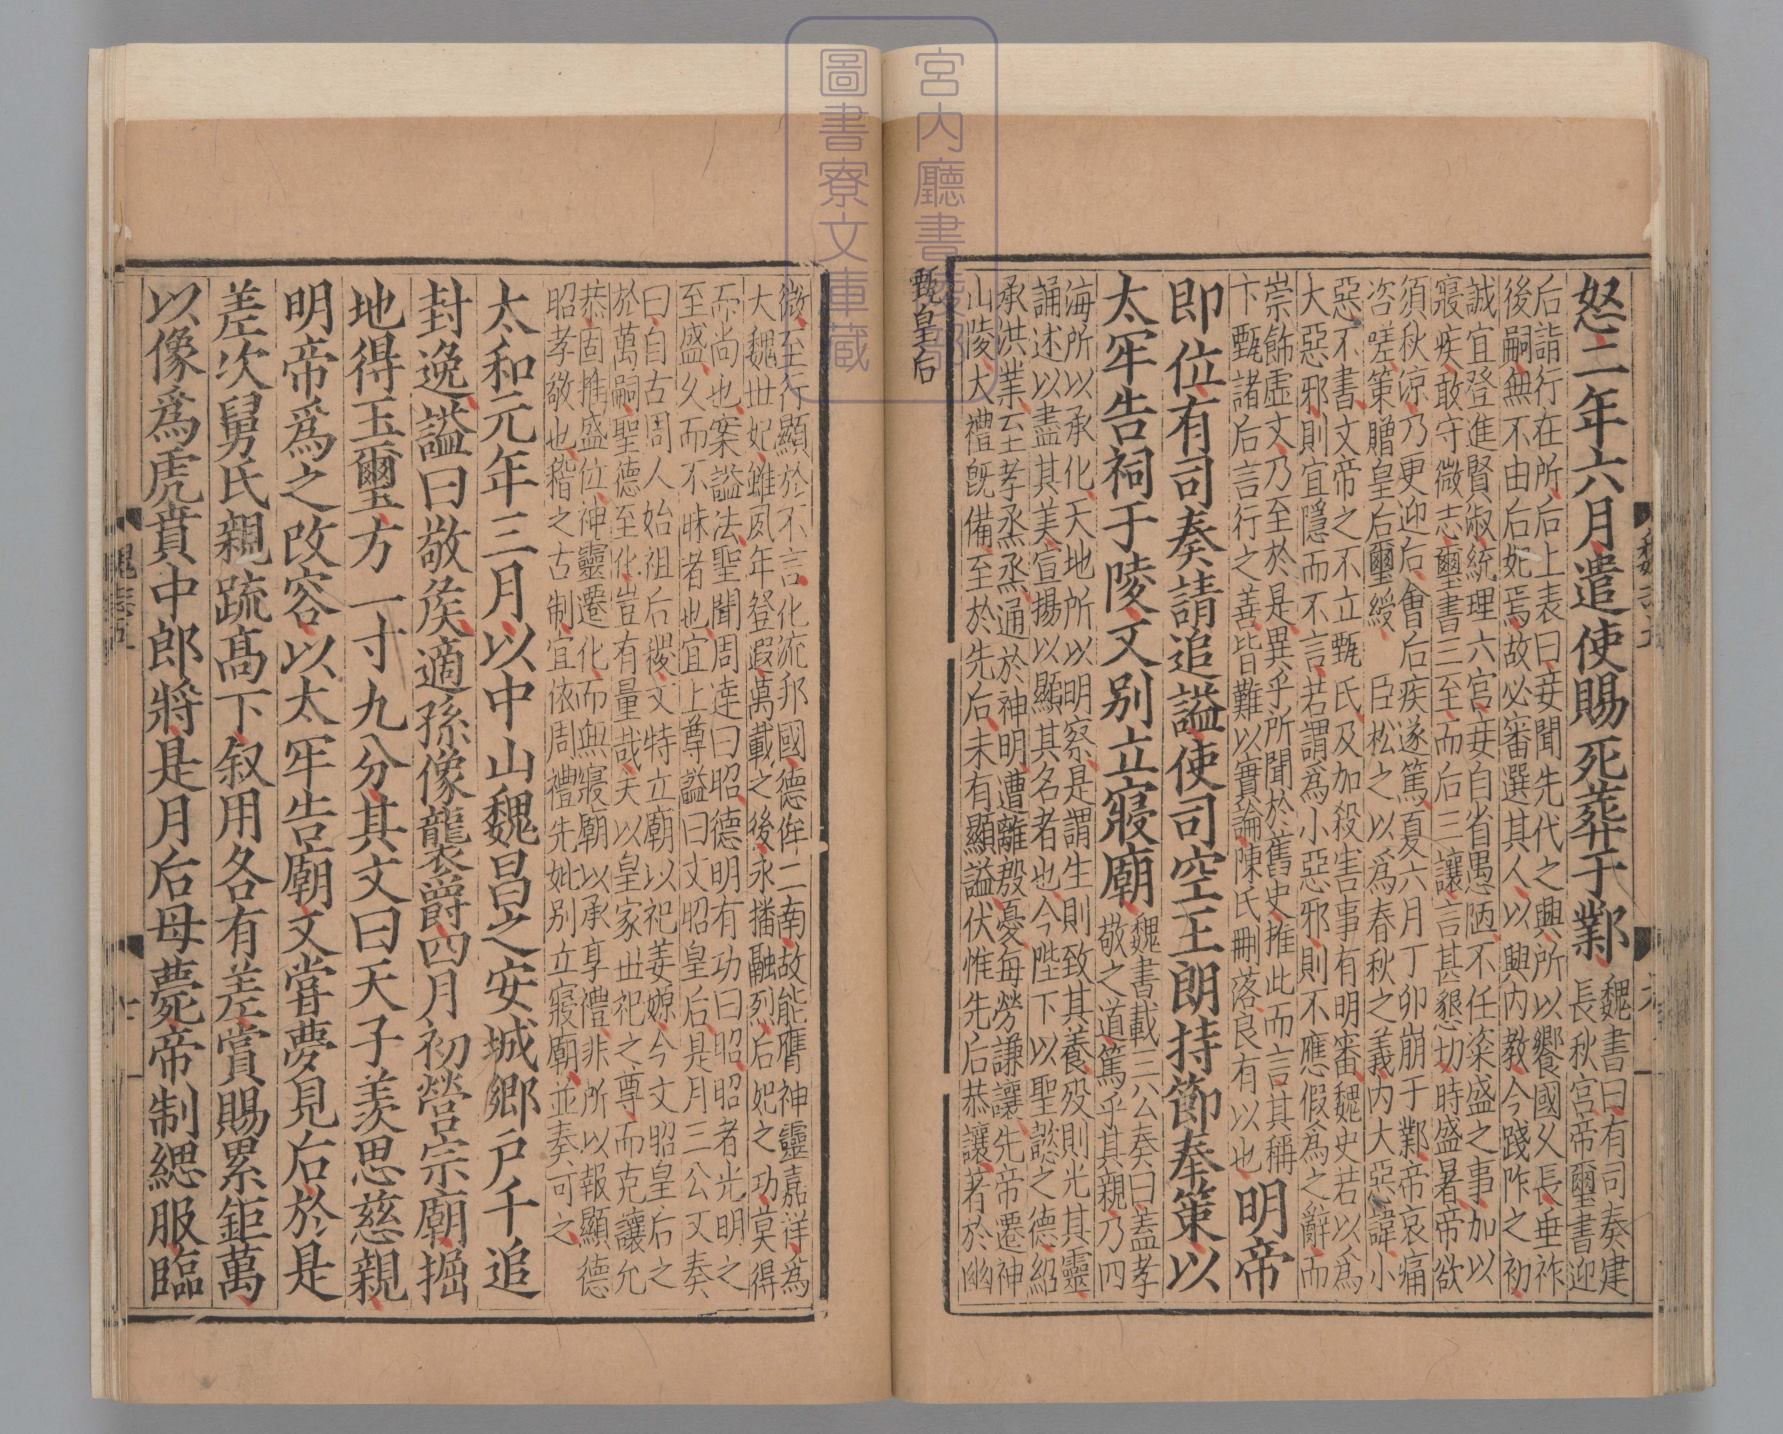 怒二年六月遣使賜死葬于鄴魏書曰有司奏建
長秋宮帝璽書迎
后詣行在所后上表曰妾聞先代之興所以饗國久長垂祚
後嗣無不由后妃焉故必審選其人以興内教今踐阼之初
誠宜登進賢淑統理六宫妾自省愚陋不任粢盛之事加以
寢疾敢守微志璽書三至而后三讓言甚懇切時盛暑帝欲
須秋凉乃更迎后會后疾遂篤夏六月丁卯崩于鄴帝哀痛
咨嗟策贈皇后璽綬 臣松之以爲春秋之義内大惡諱小
惡不書文帝之不立甄氏及加殺害事有明審魏史若以爲
大惡邪則宜隱而不言若謂爲小惡邪則不應假爲之辭而
崇飾虛文乃至於是異乎所聞於舊史推此而言其稱
卞甄諸后言行之善皆難以實論陳氏刪落良有以也明帝
即位有司奏請追謚使司空王朗持節奉策以
太牢告祠于陵又别立寢廟魏書載三公奏曰盖孝
敬之道篤乎其親乃四
海所以承化天地所以明察是謂生則致其養殁則光其靈
誦述以盡其美宣揚以顯其名者也今陛下以聖懿之德紹
承洪業至孝烝烝通於神明遭離殷憂每勞謙讓先帝遷神
山陵大禮旣備至於先后未有顯謚伏惟先后恭讓著於幽
甄皇后
微至行顯於不言化流邦國德侔二南故能膺神靈嘉祥爲
大魏世妃雖夙年登遐萬載之後永播融烈后妃之功莫得
而尚也案謚法聖聞周達曰昭德明有功曰昭昭者光明之
至盛久而不昧者也宜上尊謚曰文昭皇后是月三公又奏
曰自古周人始祖后稷又特立廟以祀姜嫄今文昭皇后之
於萬嗣聖德至化豈有量哉夫以皇家世祀之尊而克讓允
恭固推盛位神靈遷化而無寢廟以承享禮非所以報顯德
昭孝敬也稽之古制宜依周禮先妣别立寢廟並奏可之
太和元年三月以中山魏昌之安城郷戸千追
封逸謚曰敬侯適孫像襲爵四月初營宗廟掘
地得玉璽方一寸九分其文曰天子羨思慈親
明帝爲之改容以太牢告廟又嘗夢見后於是
差次舅氏親疏髙下叙用各有差賞賜累鉅萬
以像爲虎賁中郎將是月后母薨帝制緦服臨
魏志五
宮内廳書陵部
圖書寮文庫藏